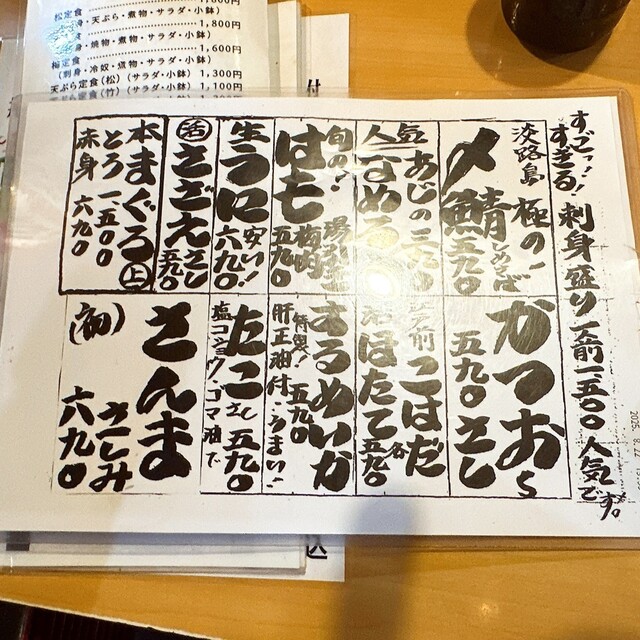 松定食
天ぷら・煮物・サラダ・小鉢)
1,800円
焼物・煮物・サラダ・小鉢)
梅定食 1,600円
(刺身・冷奴・煮物・サラダ・小鉢)
天ぷら定食(松)(サラダ・小鉢) 1,300円
天ぷら定食(竹)(サラダ・小鉢) 1,100円
付
すごっ!すぎる!刺身盛り一人前一、五〇〇人気です。
淡路島 極の!
〆鯖 しめさば
五九〇
人気 あじの
なめろう
旬の!
はも 梅肉
五九〇
生うに
安い!
六九〇
活 さざえ さし
五九〇
本まぐろ 上
とろ 一、五〇〇
赤身 六九〇
かつお
五九〇 さし
江戸前 こはだ
ほたて 各五九〇
まるめいか
特製! 五九〇
肝正油付・うまい!
たこ さし 五九〇
塩コショウ・ゴマ油で
さんま
(初) さしみ
六九〇
込